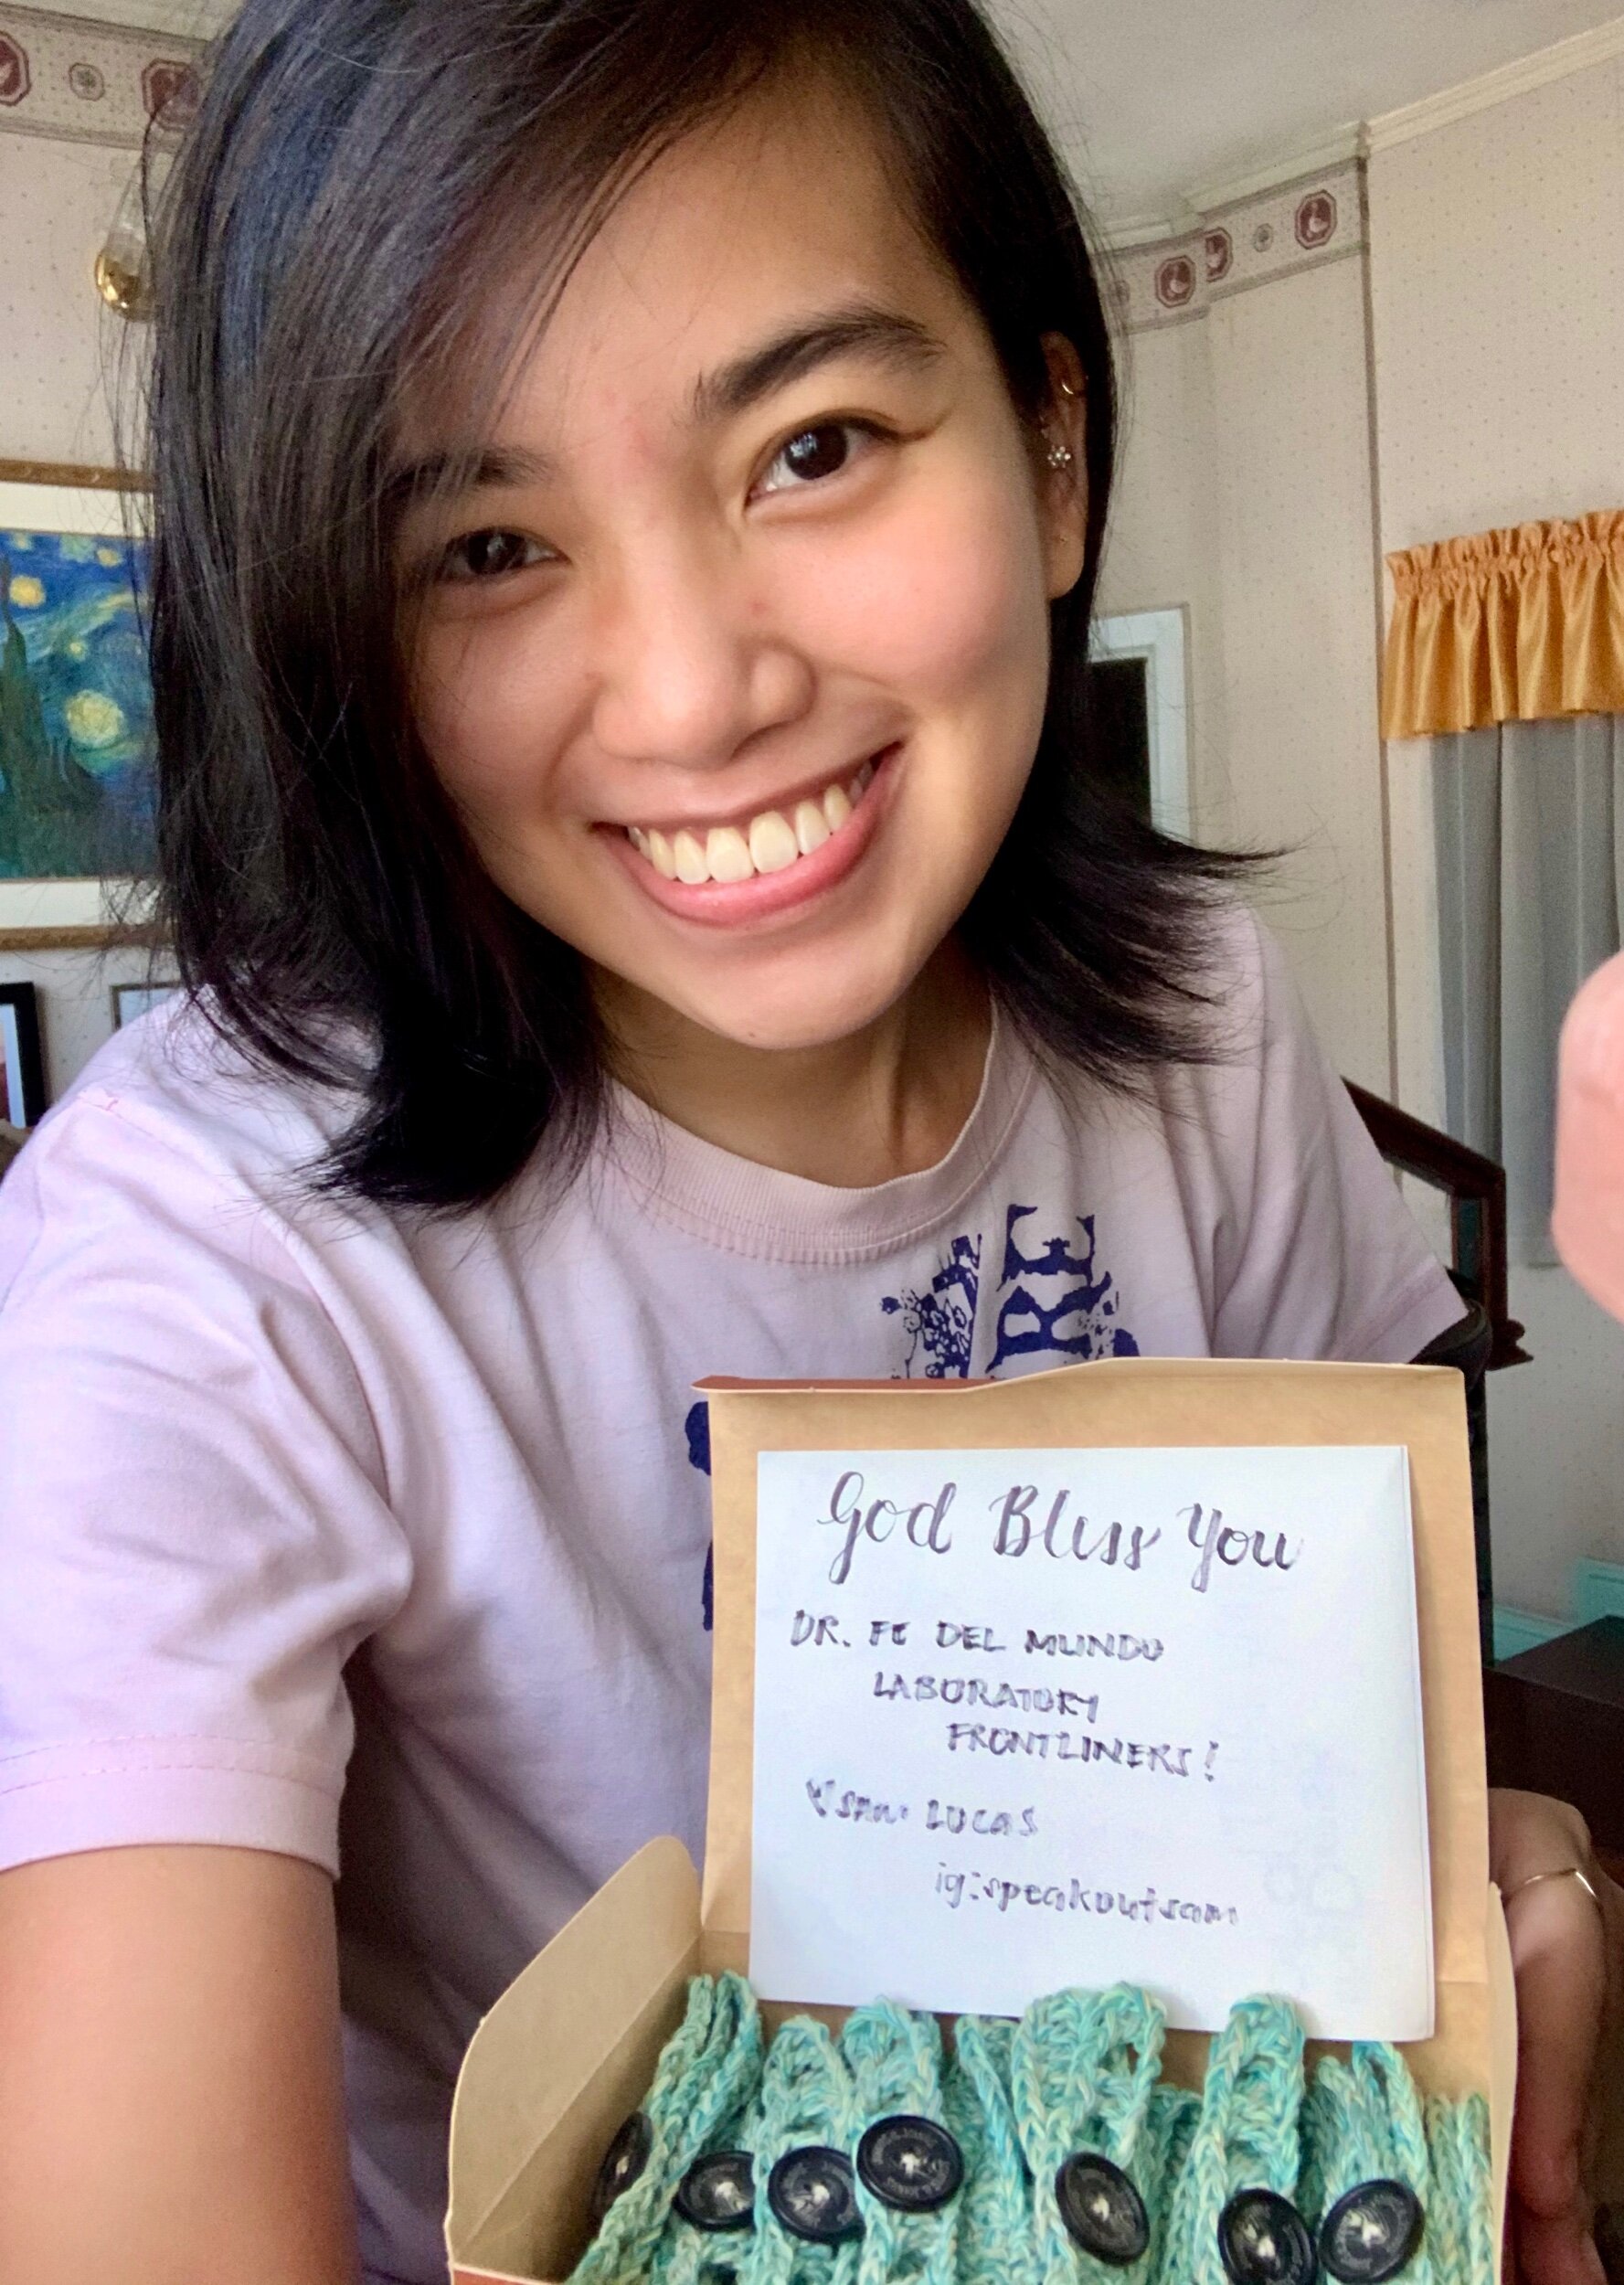 God Bless You
DR. FE DEL MUNDO
LABORATORY
FRONTLINERS!
LUCAS
ig:speakoutsam